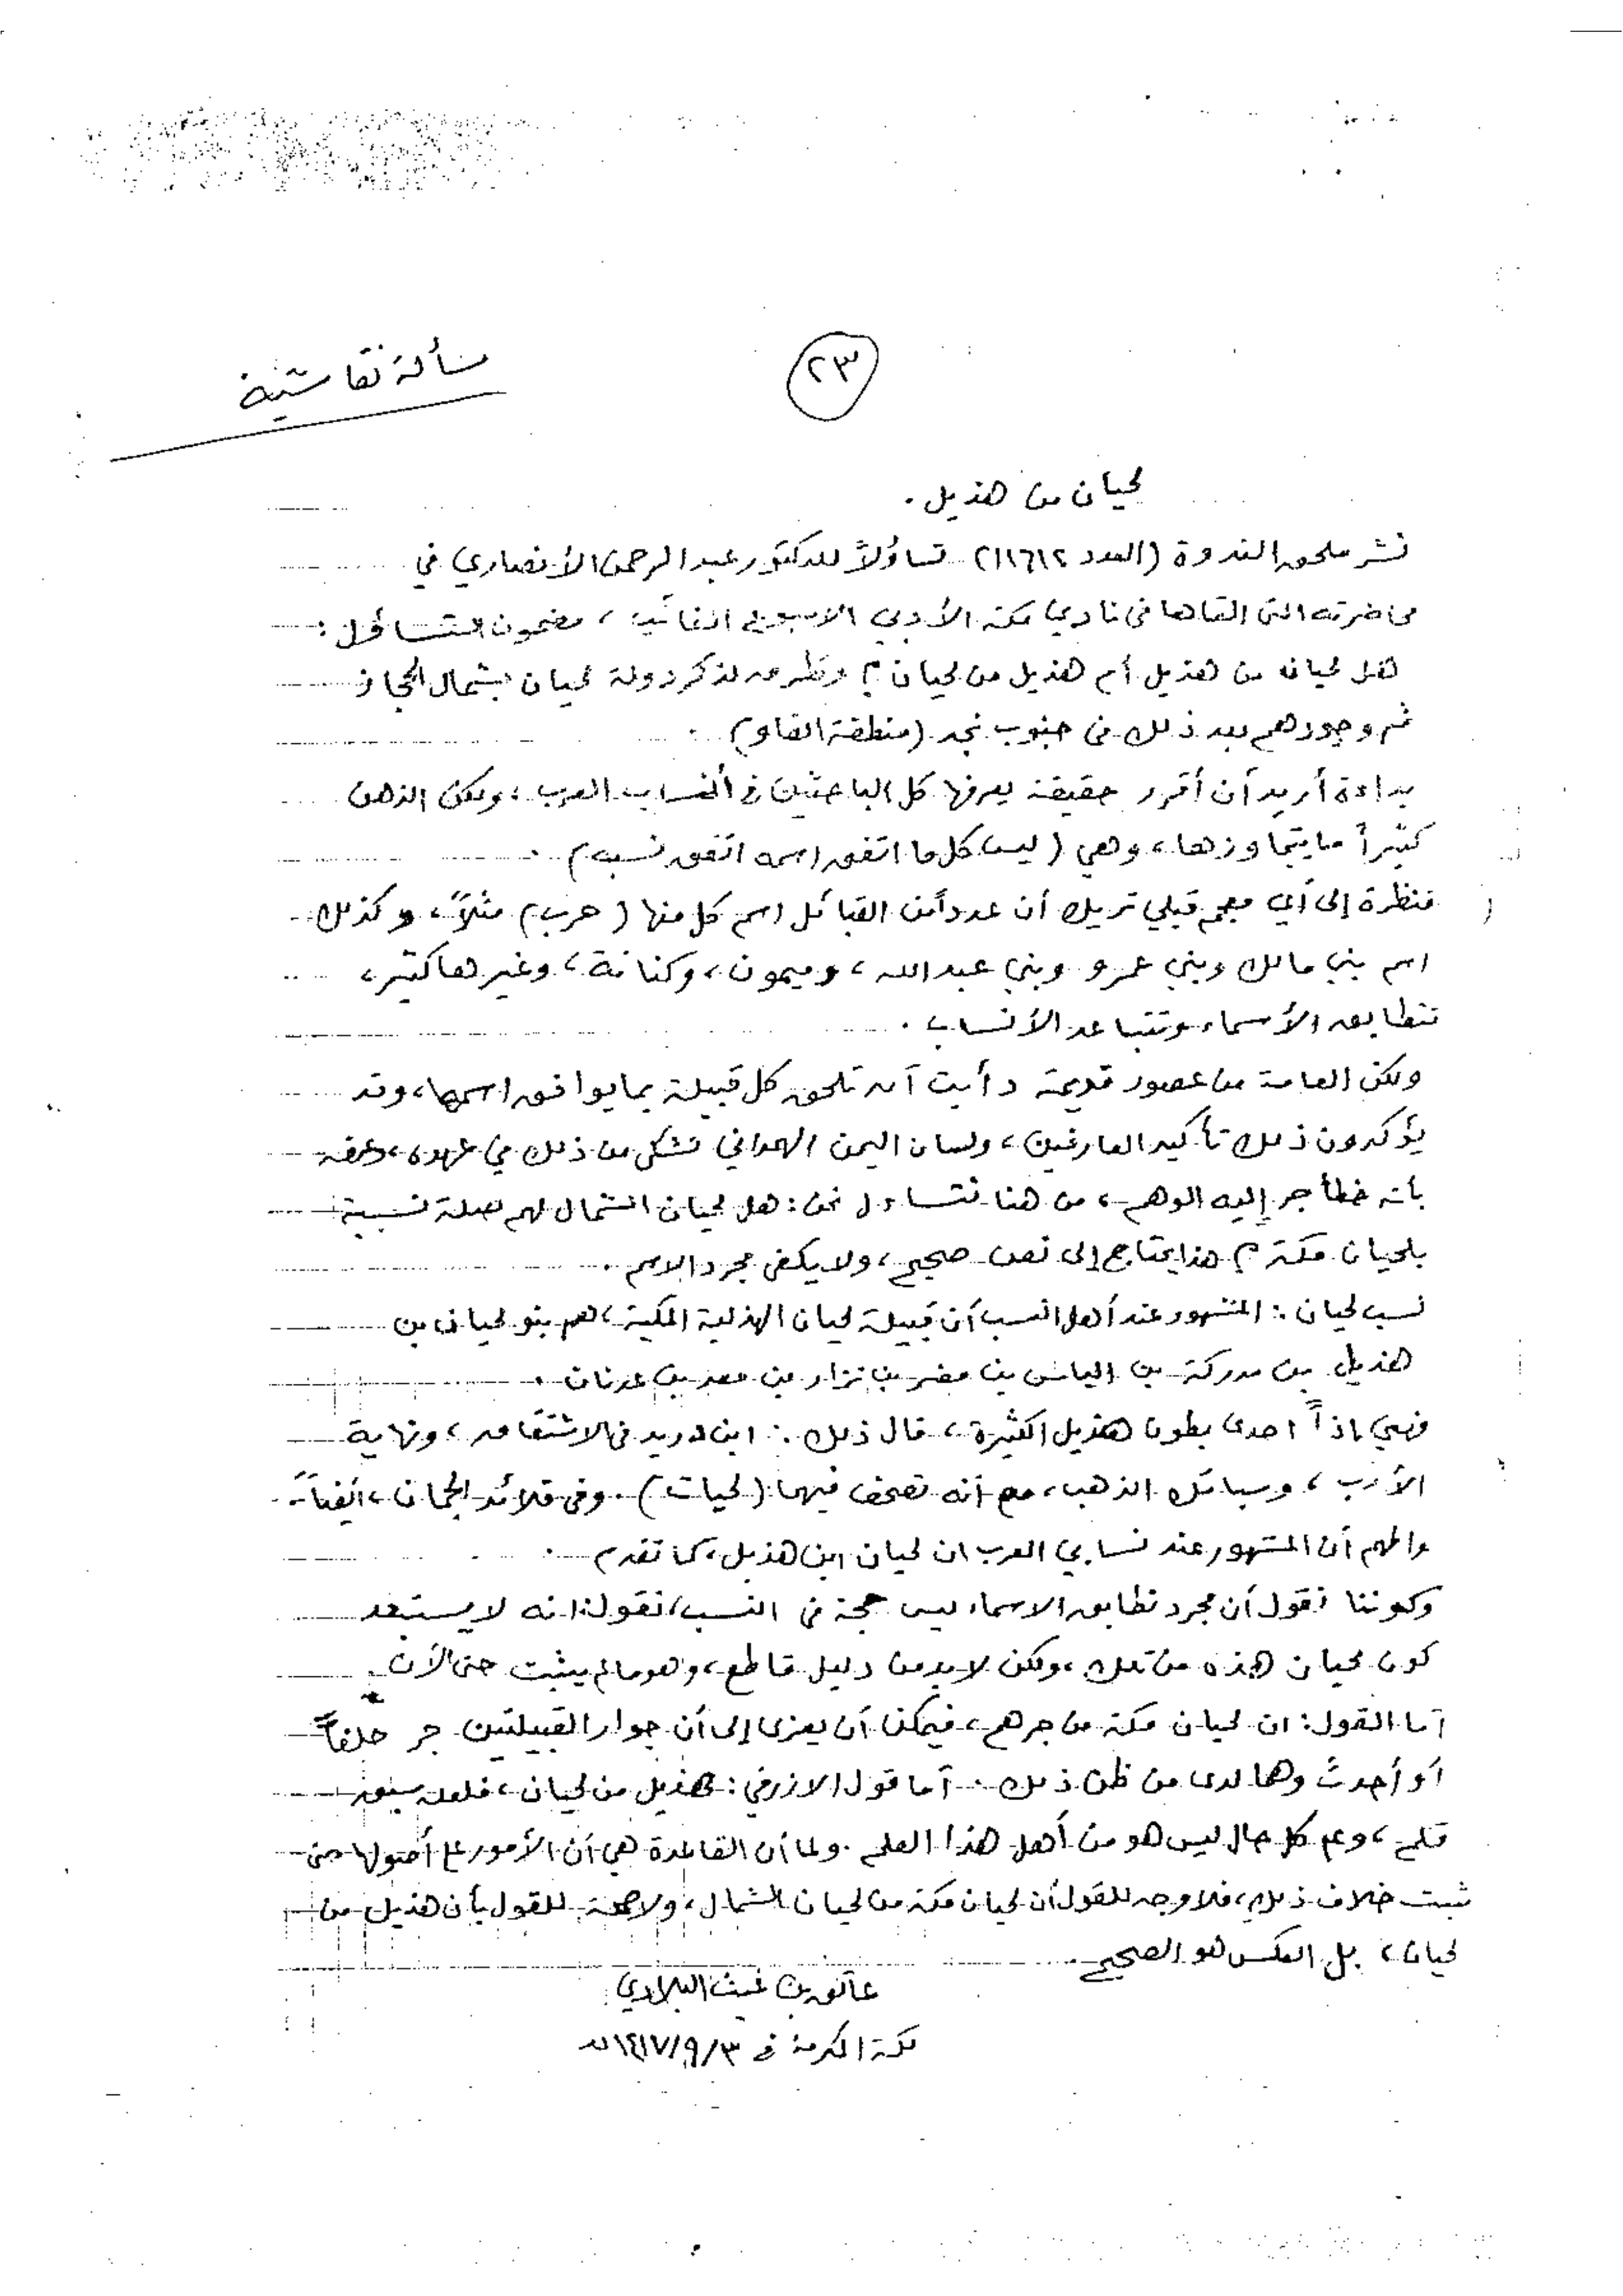 ٢٣
مسألة نقاشية
لحيان من هذيل .
نشر ملحق الندوة (العدد ١١٦١٢) تساؤلاً للدكتور عبد الرحمن الأنصاري في
محاضرته التي القاها في نادي مكة الأدبي الاسبوع الفائت ، مضمون التساؤل :
هل لحيان من هذيل أم هذيل من لحيان ؟ وتطرق لذكر دولة لحيان بشمال الحجاز
ثم وجودهم بعد ذلك في جنوب نجد (منطقة الفاو) .
بداءة أريد أن أقرر حقيقة يعرفها كل الباحثين في أنساب العرب ، ولكن الذهن
كثيراً ما يتجاوزها ، وهي ( ليس كل ما اتفق اسمه اتفق نسبه ) .
فنظرة إلى أي معجم قبلي تريك أن عدداً من القبائل اسم كل منها ( حرب ) مثلاً ، وكذلك
اسم بني مالك وبني عمرو وبني عبد الله ، وميمون ، وكنانة ، وغيرها كثير ،
تتطابق الأسماء وتتباعد الأنساب .
ولكن العامة من عصور قديمة دأبت أن تلحق كل قبيلة بما يوافق اسمها ، وقد
يؤكدون ذلك تأكيد العارفين ، ولسان اليمن الهمداني تشكى من ذلك في عهده ،
بأنه خطأ جر إليه الوهم ، من هنا نتساءل نحن : هل لحيان الشمال لهم صلة نسبية
بلحيان مكة ؟ هذا يحتاج إلى نص صحيح ، ولا يكفي مجرد الاسم .
نسب لحيان : المشهور عند أهل النسب أن قبيلة لحيان الهذلية المكية ، هم بنو لحيان بن
هذيل بن مدركة بن الياس بن مضر بن نزار بن معد بن عدنان .
فهي إذاً احدى بطون هذيل الكثيرة ، قال ذلك : ابن دريد في الاشتقاق ، ونهاية
الأرب ، وسبائك الذهب ، مع أنه تصحف فيهما (لحيات) . وفي قلائد الجمان ، أيضاً .
والمهم أن المشهور عند نسابي العرب ان لحيان ابن هذيل ، كما تقدم .
وكوننا نقول أن مجرد تطابق الاسماء ليس حجة في النسب ، نقول : انه لا يستبعد
كون لحيان هذه من تلك ، ولكن لابد من دليل قاطع ، وهو ما لم يثبت حتى الآن .
أما القول : ان لحيان مكة من جرهم ، فيمكن أن يعزى إلى أن جوار القبيلتين جر حلفاً
أو أحدث وهما لدى من ظن ذلك . أما قول الازرقي : هذيل من لحيان ، فلعله سبق
قلم ، وعلى كل حال ليس هو من أهل هذا العلم . ولما أن القاعدة هي أن الأمور على أصولها حتى
ثبت خلاف ذلك ، فلا وجه للقول أن لحيان مكة من لحيان الشمال ، ولا صحة للقول بأن هذيل من
لحيان ، بل العكس هو الصحيح .
عاتق بن غيث البلادي
مكة المكرمة في ١٤١٧/٩/٣هـ